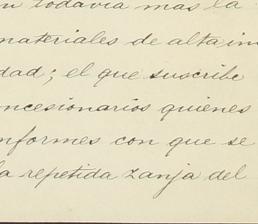 n todavia mas la
materiales de alta im
dad; el que suscribe
ncesionarios quienes
nformes con que se
la repetida zanja del